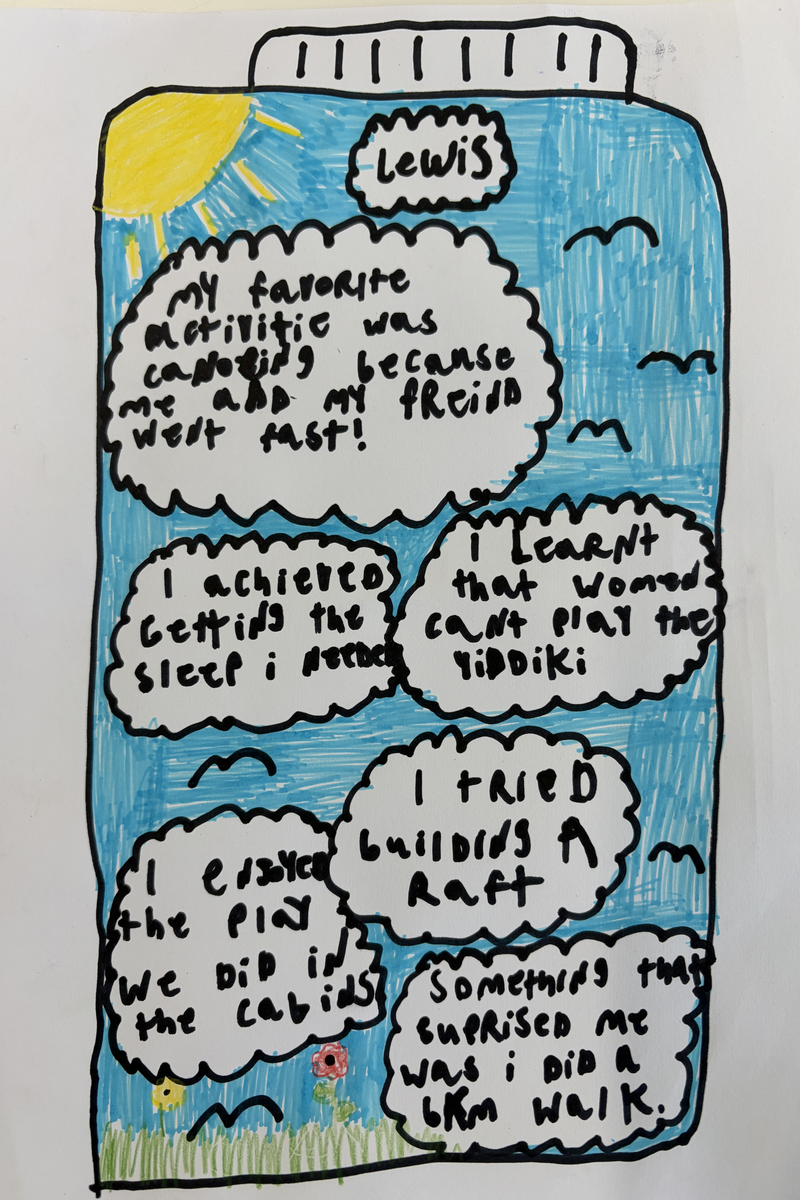 Lewis
My favorite
activitie was
canoeing because
me and my freind
went fast!
I achieved
getting the
sleep i needed
I Learnt
that women
cant play the
yiddiki
I tried
building A
Raft
I enjoyed
the play
we did in
the cabins
Something that
suprised me
was i did a
6Km walk.